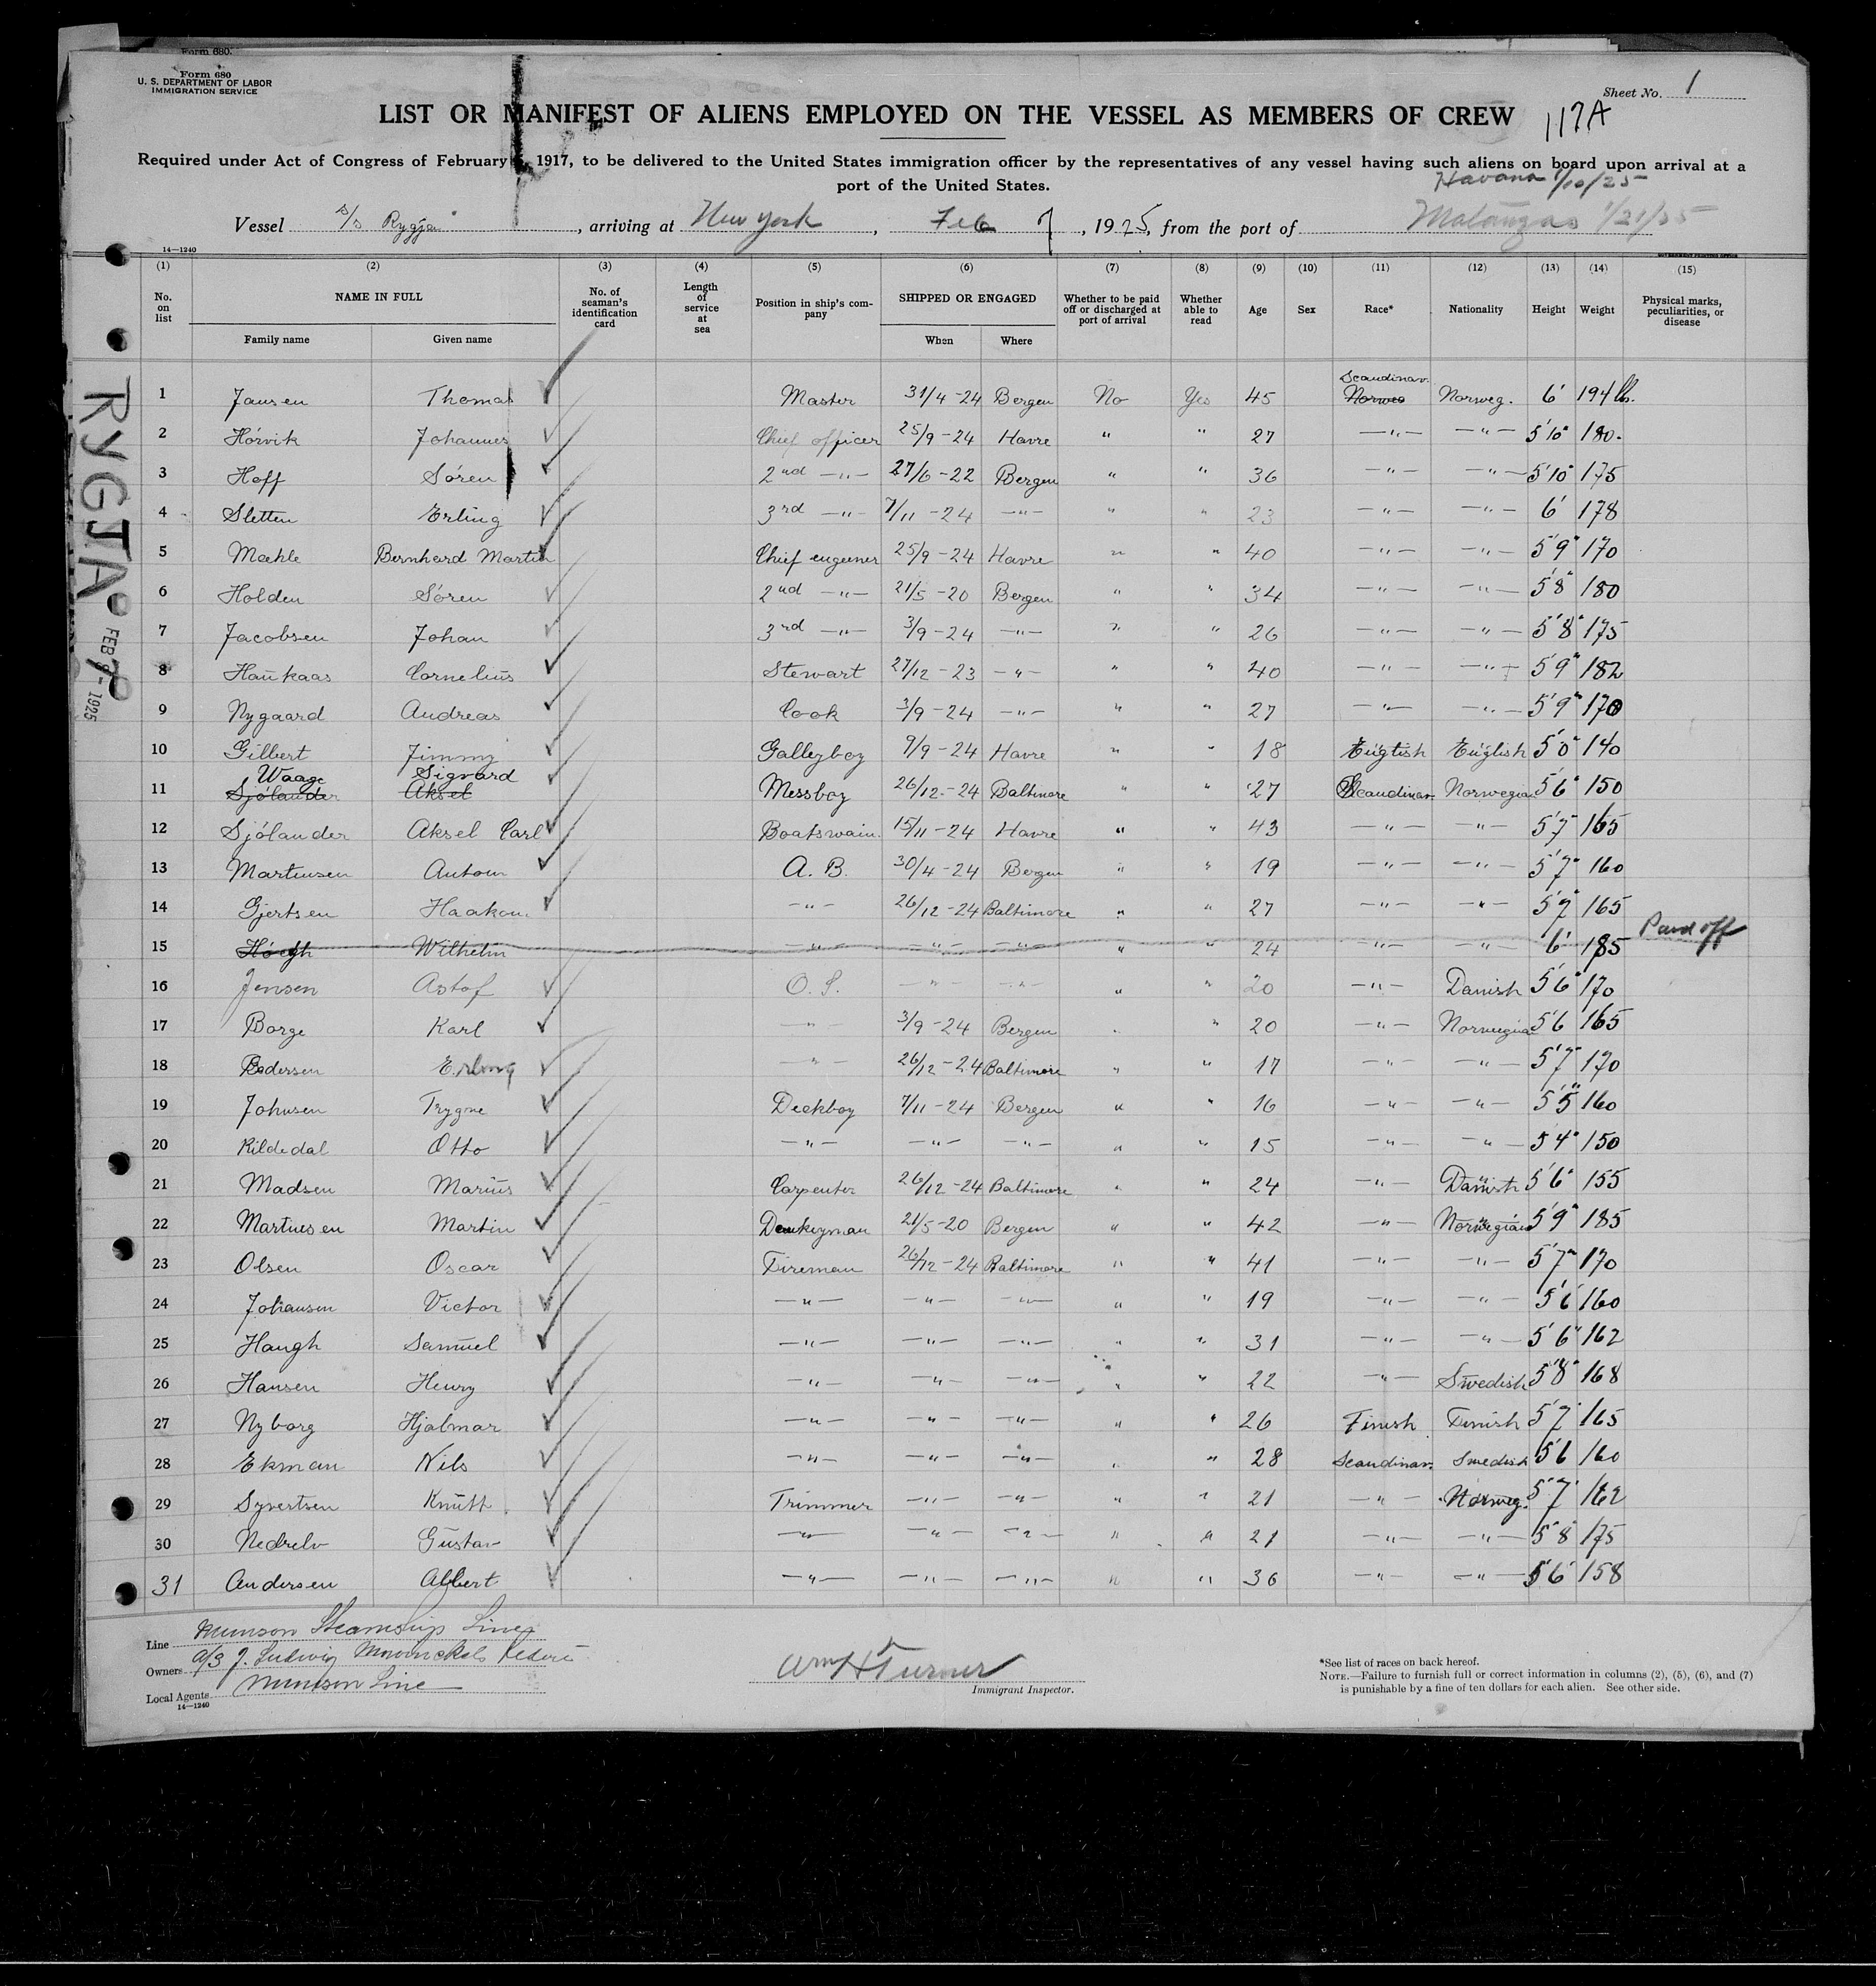 Form 680.
Form 680
U. S. DEPARTMENT OF LABOR
IMMIGRATION SERVICE
Sheet No. 1
LIST OR MANIFEST OF ALIENS EMPLOYED ON THE VESSEL AS MEMBERS OF CREW 117A
Required under Act of Congress of February 5, 1917, to be delivered to the United States immigration officer by the representatives of any vessel having such aliens on board upon arrival at a
port of the United States.
Havana 1/10/25
Vessel s/s Rygja, arriving at New York, Feb 7, 1925, from the port of Matanzas 1/21/25
14—1240
GOVERNMENT PRINTING OFFICE
(1) (2) (3) (4) (5) (6) (7) (8) (9) (10) (11) (12) (13) (14) (15)
No. on list NAME IN FULL Family name Given name No. of seaman's identification card Length of service at sea Position in ship's company SHIPPED OR ENGAGED When Where Whether to be paid off or discharged at port of arrival Whether able to read Age Sex Race* Nationality Height Weight Physical marks, peculiarities, or disease
1 Jansen Thomas Master 31/4-24 Bergen No Yes 45 Norweg Scandinav. Norweg. 6' 194 lb.
2 Hórvik Johannes Chief officer 25/9-24 Havre " " 27 —"— —"— 5'10" 180.
3 Hoff Sóren 2nd —"— 27/6-22 Bergen " " 36 —"— —"— 5'10" 175
4 Sletten Erling 3rd —"— 7/11-24 —"— " " 23 —"— —"— 6' 178
5 Maehle Bernhard Martin Chief engeener 25/9-24 Havre " " 40 —"— —"— 5'9" 170
6 Holden Sóren 2nd —"— 21/5-20 Bergen " " 34 —"— —"— 5'8" 180
7 Jacobsen Johan 3rd —"— 3/9-24 —"— " " 26 —"— —"— 5'8" 175
8 Haukaas Cornelius Stewart 27/12-23 —"— " " 40 —"— —"— 5'9" 182
9 Nygaard Andreas Cook 3/9-24 —"— " " 27 —"— —"— 5'9" 170
10 Gilbert Jimmy Galleyboy 9/9-24 Havre " " 18 English English 5'0" 140
Waage Sigvard
11 Sjólander Aksel Messboy 26/12-24 Baltimore " " 27 Scandinav. Norwegian 5'6" 150
12 Sjólander Aksel Carl Boatswain. 15/11-24 Havre " " 43 —"— —"— 5'7" 165
13 Martinsen Antoni A. B. 30/4-24 Bergen " " 19 —"— —"— 5'7" 160
14 Gjertsen Haakon —"— 26/12-24 Baltimore " " 27 —"— —"— 5'7" 165
15 Hóegh Wilhelm —"— —"— —"— " " 24 —"— —"— 6' 185 Paid off
16 Jensen Astof O. S. —"— —"— " " 20 —"— Danish 5'6" 170
17 Borge Karl —"— 3/9-24 Bergen " " 20 —"— Norwegian 5'6 165
18 Pedersen Erling —"— 26/12-24 Baltimore " " 17 —"— —"— 5'7" 170
19 Johnsen Trygve Deckboy 7/11-24 Bergen " " 16 —"— —"— 5'5" 160
20 Kildedal Otto —"— —"— —"— " " 15 —"— —"— 5'4" 150
21 Madsen Marius Carpenter 26/12-24 Baltimore " " 24 —"— Danish 5'6" 155
22 Martinesen Martin Donkeyman 21/5-20 Bergen " " 42 —"— Norwegian 5'9" 185
23 Olsen Oscar Fireman 26/12-24 Baltimore " " 41 —"— —"— 5'7" 170
24 Johansen Victor —"— —"— —"— " " 19 —"— —"— 5'6 160
25 Haugh Samuel —"— —"— —"— " " 31 —"— —"— 5'6" 162
26 Hansen Henry —"— —"— —"— " " 22 —"— Swedish 5'8" 168
27 Nyborg Hjalmar —"— —"— —"— " " 26 Finish Finish 5'7" 165
28 Ekman Nils —"— —"— —"— " " 28 Scandinav. Swedish 5'6 160
29 Syvertsen Knutt Trimmer —"— —"— " " 21 —"— Norweg. 5'7" 162
30 Nedrelv Gustav —"— —"— —"— " " 21 —"— —"— 5'8" 175
31 Andersen Albert —"— —"— —"— " " 36 —"— —"— 5'6" 158
RYGJA
FEB 7- 1925
Line Munson Steamship Line
Owners A/S J. Ludwig Mowinckels Rederi
Local Agents Munson Line
14—1240
Wm H Turner
Immigrant Inspector.
*See list of races on back hereof.
NOTE.—Failure to furnish full or correct information in columns (2), (5), (6), and (7)
is punishable by a fine of ten dollars for each alien. See other side.